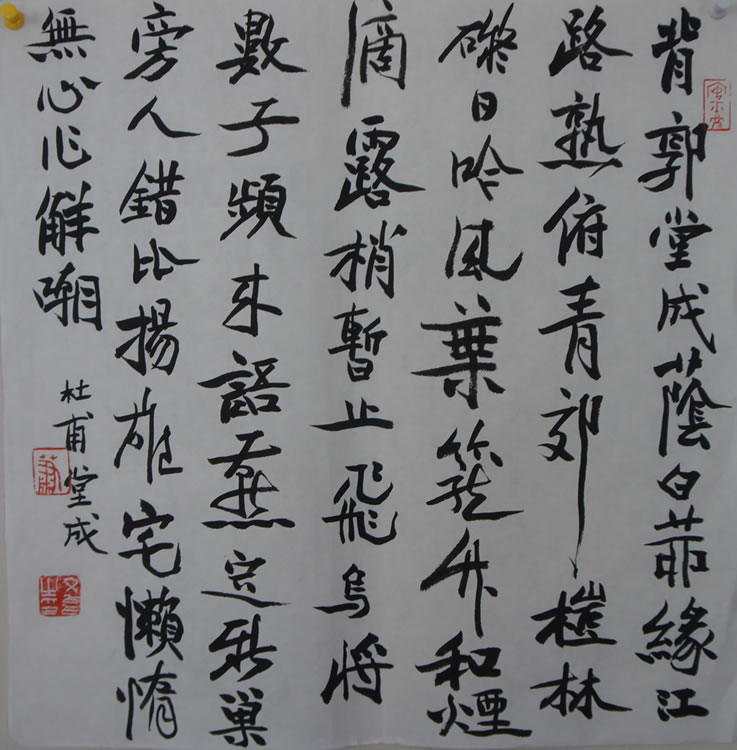 背郭堂成蔭白茆緣江
路熟俯青郊榿林
礙日吟風葉籠竹和煙
滴露梢暫止飛烏將
數子頻来語燕定新巢
旁人錯比揚雄宅懶惰
無心作解嘲
杜甫堂成